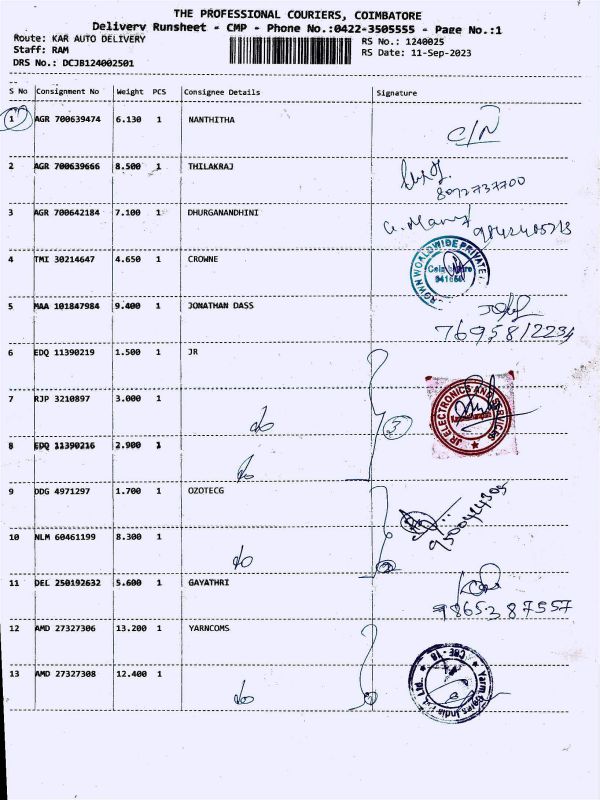 THE PROFESSIONAL COURIERS, COIMBATORE
Delivery Runsheet - CMP - Phone No.:0422-3505555 - Page No.:1
Route: KAR AUTO DELIVERY
RS No.: 1240025
Staff: RAM
RS Date: 11-Sep-2023
DRS No.: DCJB124002501
S No Consignment No Weight PCS Consignee Details Signature
1 AGR 700639474 6.130 1 NANTHITHA C/N
2 AGR 700639666 8.500 1 THILAKRAJ
8072737700
3 AGR 700642184 7.100 1 DHURGANANDHINI
4 TMI 30214647 4.650 1 CROWNE
5 MAA 101847984 9.400 1 JONATHAN DASS
7695812234
6 EDQ 11390219 1.500 1 JR
7 RJP 3210897 3.000 1 do
3
JR ELECTRONICS AND SERVICES
8 EDQ 11390216 2.900 1 do
9 DDG 4971297 1.700 1 OZOTECG
10 NLM 60461199 8.300 1 do
11 DEL 250192632 5.600 1 GAYATHRI
9865387557
12 AMD 27327306 13.200 1 YARNCOMS
13 AMD 27327308 12.400 1 do